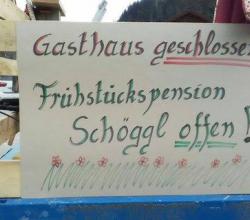 Gasthaus geschlossen
Frühstückspension
Schöggl offen !